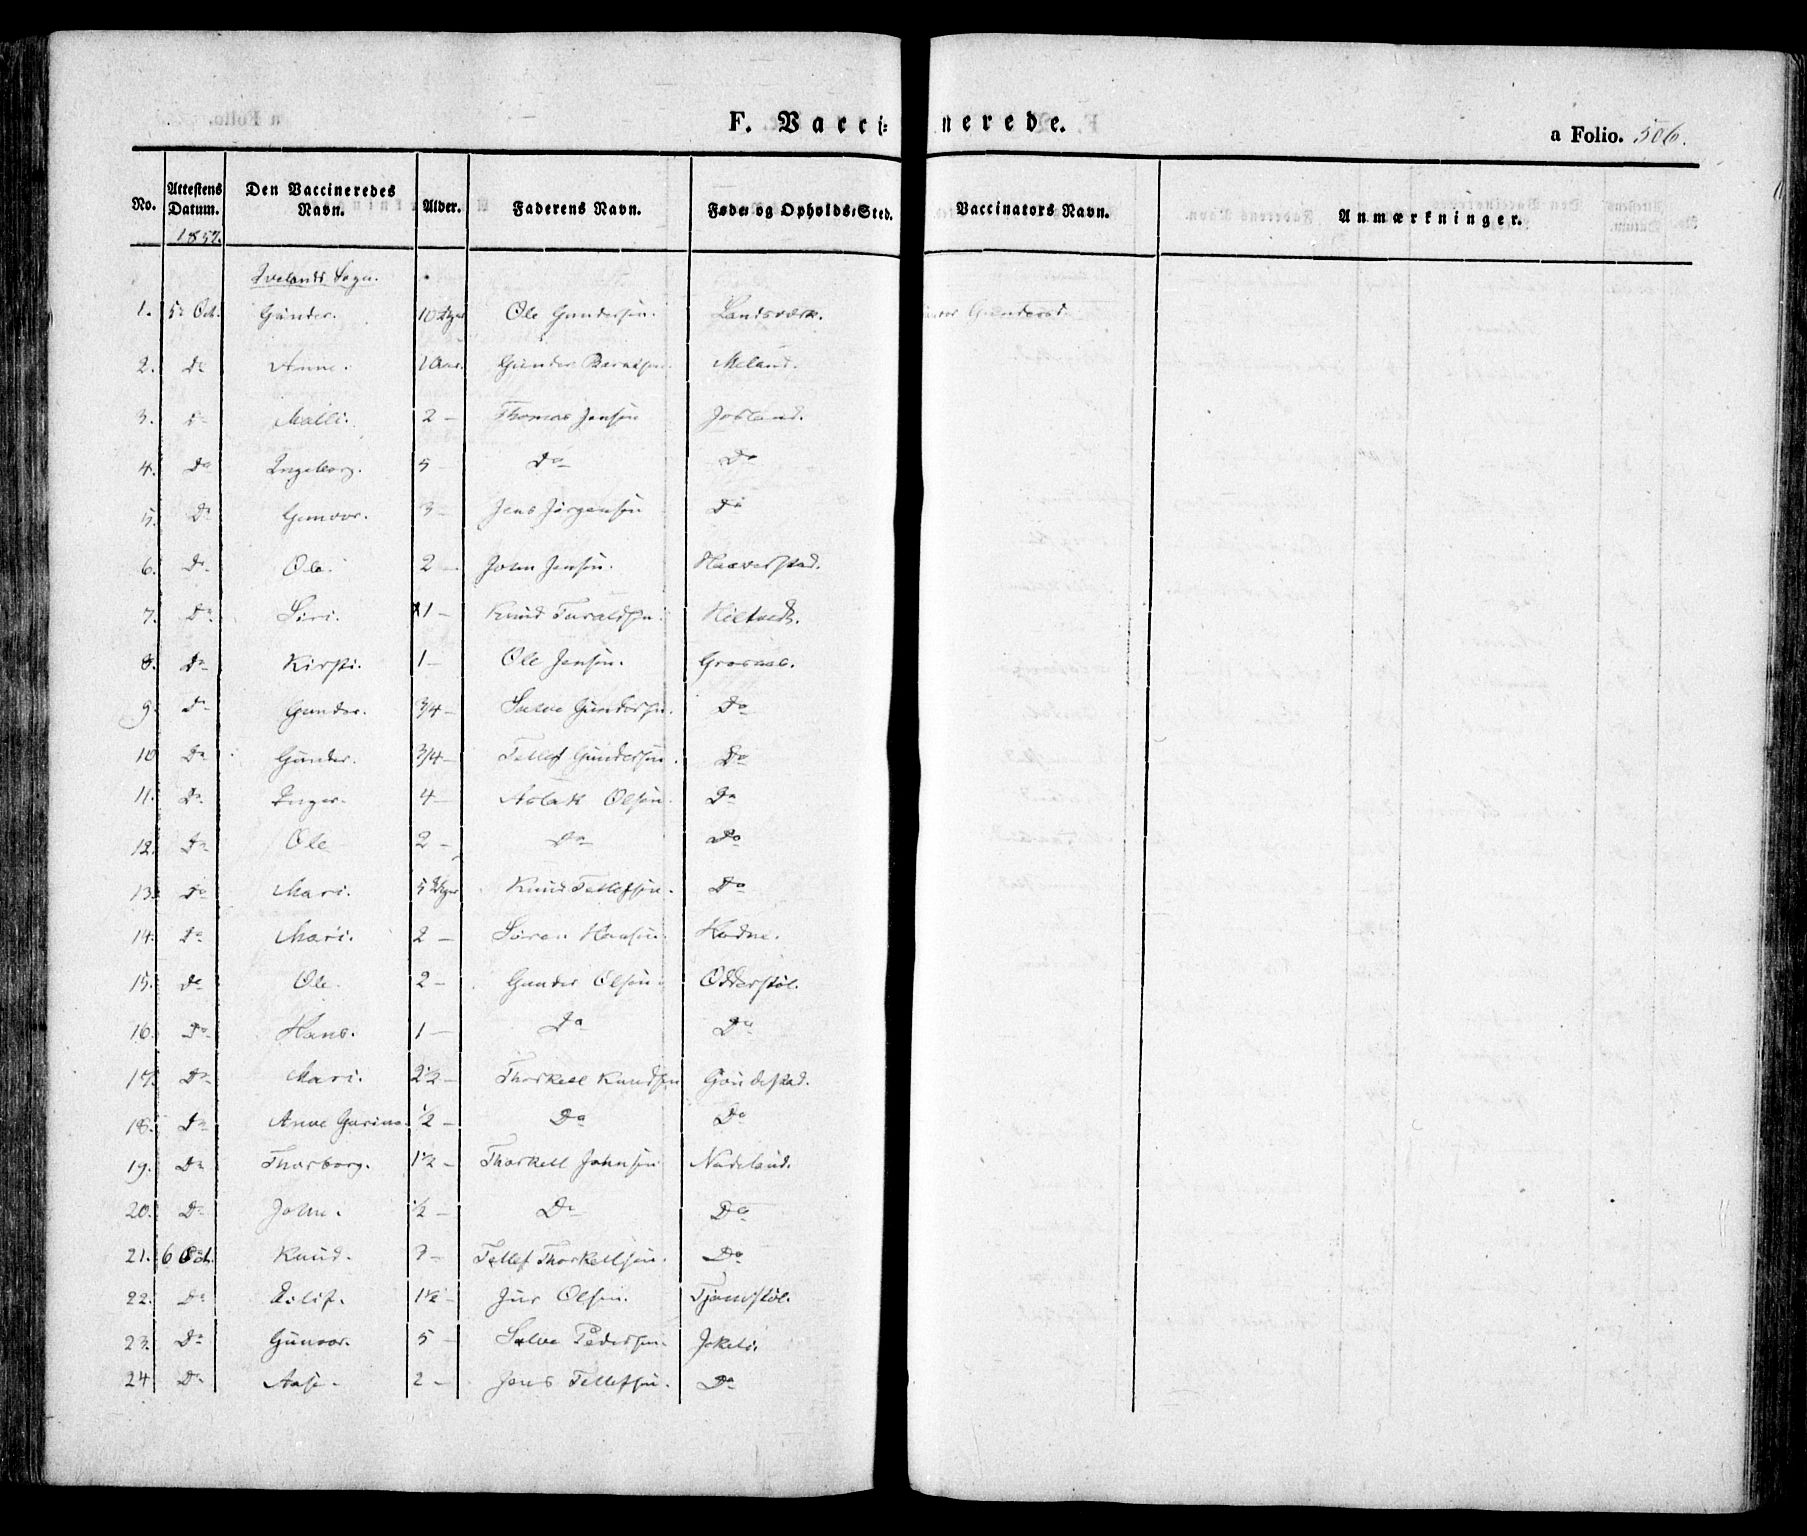 F. Vaccinerede.
a Folio. 506.
No. Attestens Datum. Den Vaccineredes Navn. Alder. Faderens Navn. Føde- og Opholds-Sted. Vaccinators Navn. Anmærkninger.
1857.
Ivelands Sogn.
1. 5 Oct. Gunder. 10 Uger Ole Gundersen. Landsværk. Gundersd.
2. Do Anne. 1 Aar. Gunder Berntsen. Meland.
3. Do Malli. 2 — Thomas Jensen Josland.
4. Do Ingeborg. 5 — Do Do
5. Do Gunvor. 3 — Jens Jørgensen Do
6. Do Ole. 2 — John Jensen. Haaverstad.
7. Do Siri. 1 — Knud Taraldsen. Hiltvedt.
8. Do Kirsti. 1 — Ole Jensen. Grosaas.
9. Do Gunder. 3/4 — Salve Gundersen. Do
10 Do Gunder. 3/4 — Tellef Gundersen. Do
11. Do Inger. 4 — Aslak Olsen. Do
12. Do Ole 2 — Do Do
13. Do Mari. 5 Uger Knud Tellefsen. Do
14. Do Mari. 2 — Søren Hansen. Hodne.
15. Do Ole. 2 — Gunder Olsen. Odderstøl.
16. Do Hans. 1 — Do Do
17. Do Mari. 2 1/2 — Thorkell Knudsen Gaudestad.
18. Do Anne Gurine. 1/2 — Do Do
19. Do Thorborg. 1 1/2 — Thorkell Johnsen Nadeland.
20. Do John. 1/2 — Do Do
21. 6 Oct. Knud. 3 — Tellef Thorkellsen. Do
22. Do Eilif. 1 1/2 — Jur Olsen. Tjomstøl.
23. Do Gunvor. 5 — Salve Pedersen. Jokeli.
24 Do Aase. 2 — Jens Tellefsen. Do